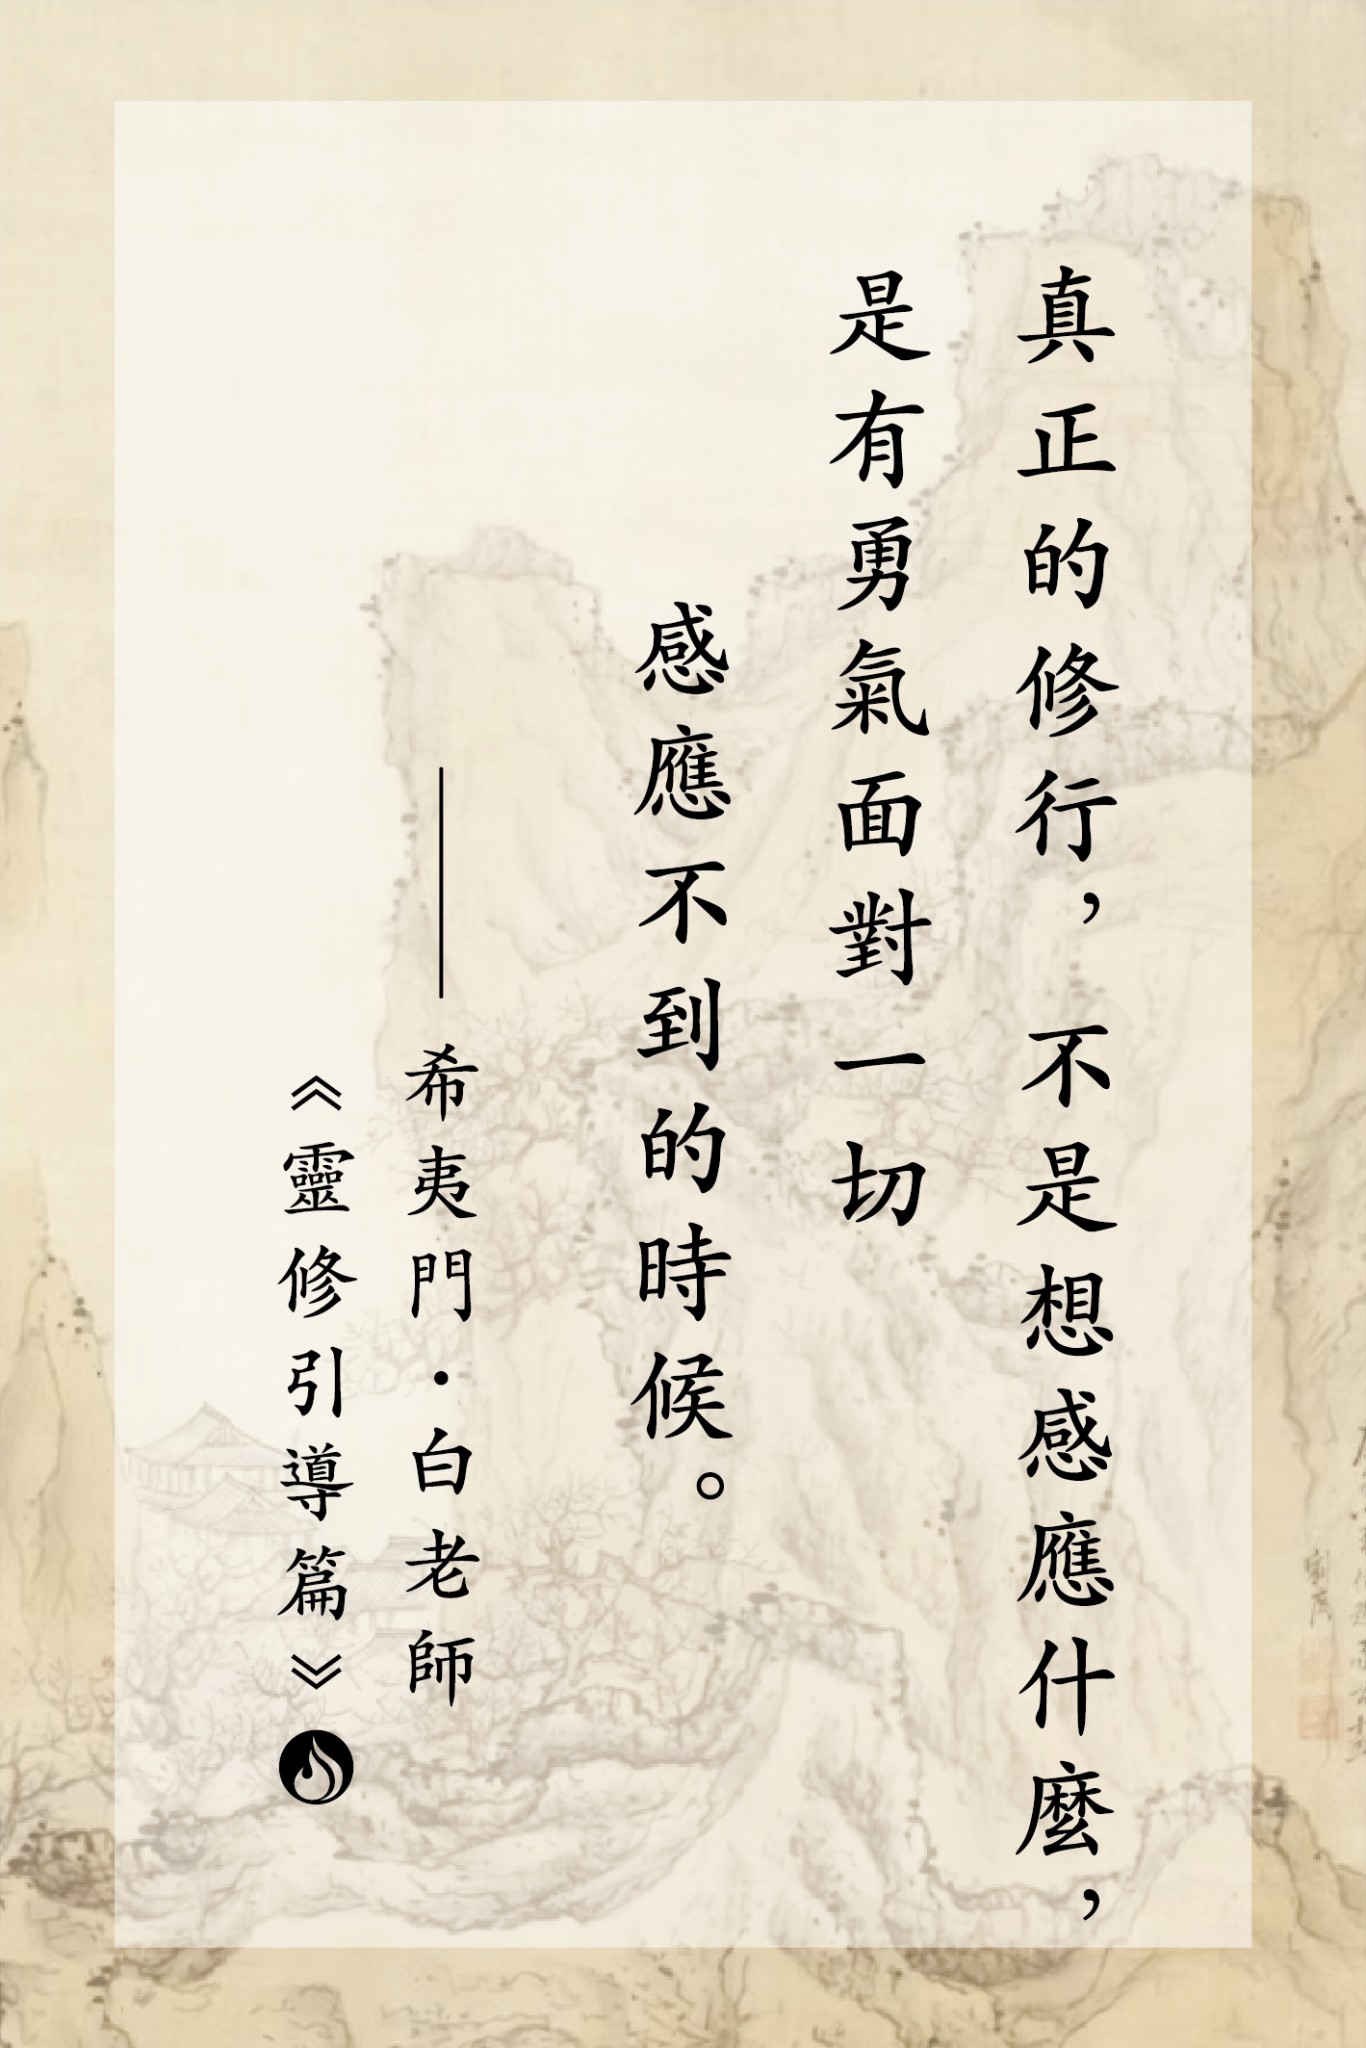 真正的修行，不是想感應什麼，
是有勇氣面對一切
感應不到的時候。
——希夷門·白老師
《靈修引導篇》